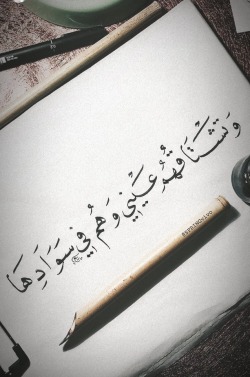 وَتَشْتَاقُهُمْ عَيْنِي وَهُمْ فِي سَوَادِهَا